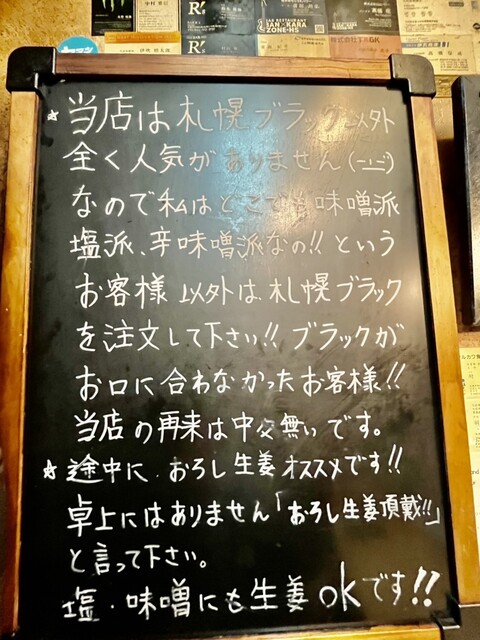 ☆当店は札幌ブラック以外
全く人気がありません(一一)
なので私はどこでも味噌派
塩派、辛味噌派なの!!という
お客様以外は札幌ブラック
を注文して下さい!!ブラックが
お口に合わなかったお客様!!
当店の再来は中々無いです。
☆途中に、おろし生姜オススメです!!
卓上にはありません「おろし生姜頂戴!!」
と言って下さい。
塩・味噌にも生姜okです!!